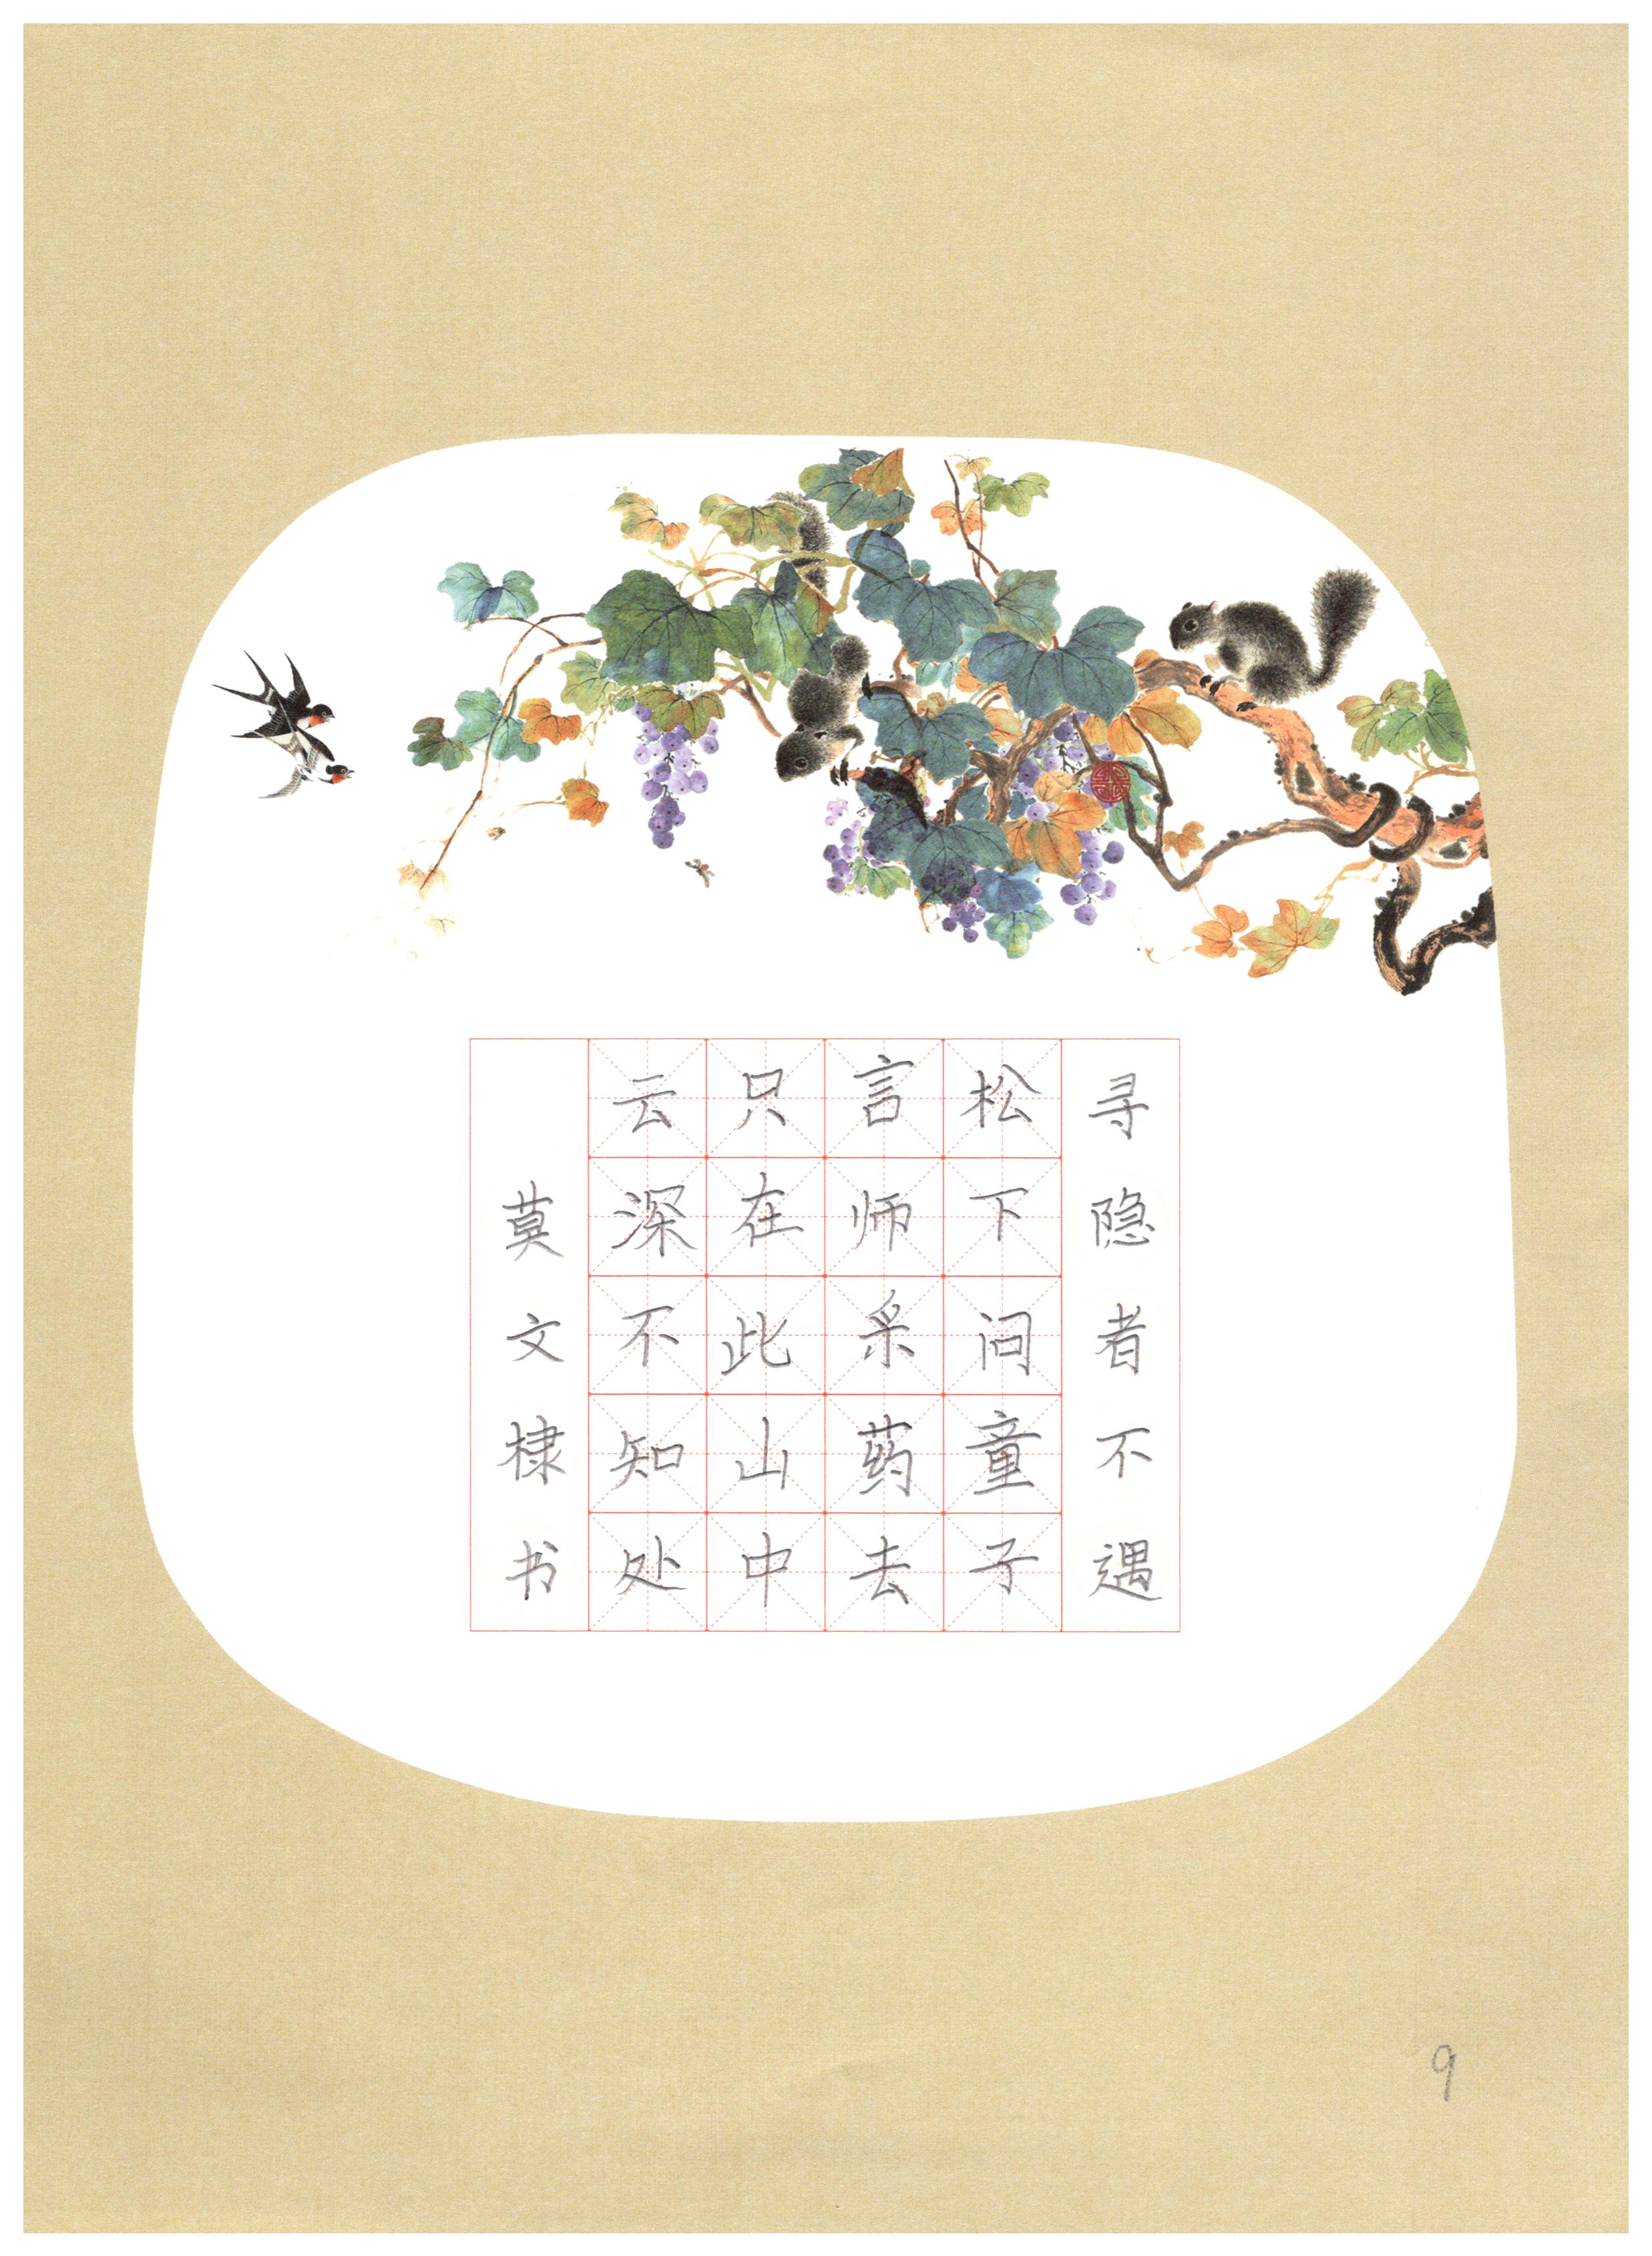 寻隐者不遇
松下问童子
言师采药去
只在此山中
云深不知处
莫文棣书
9